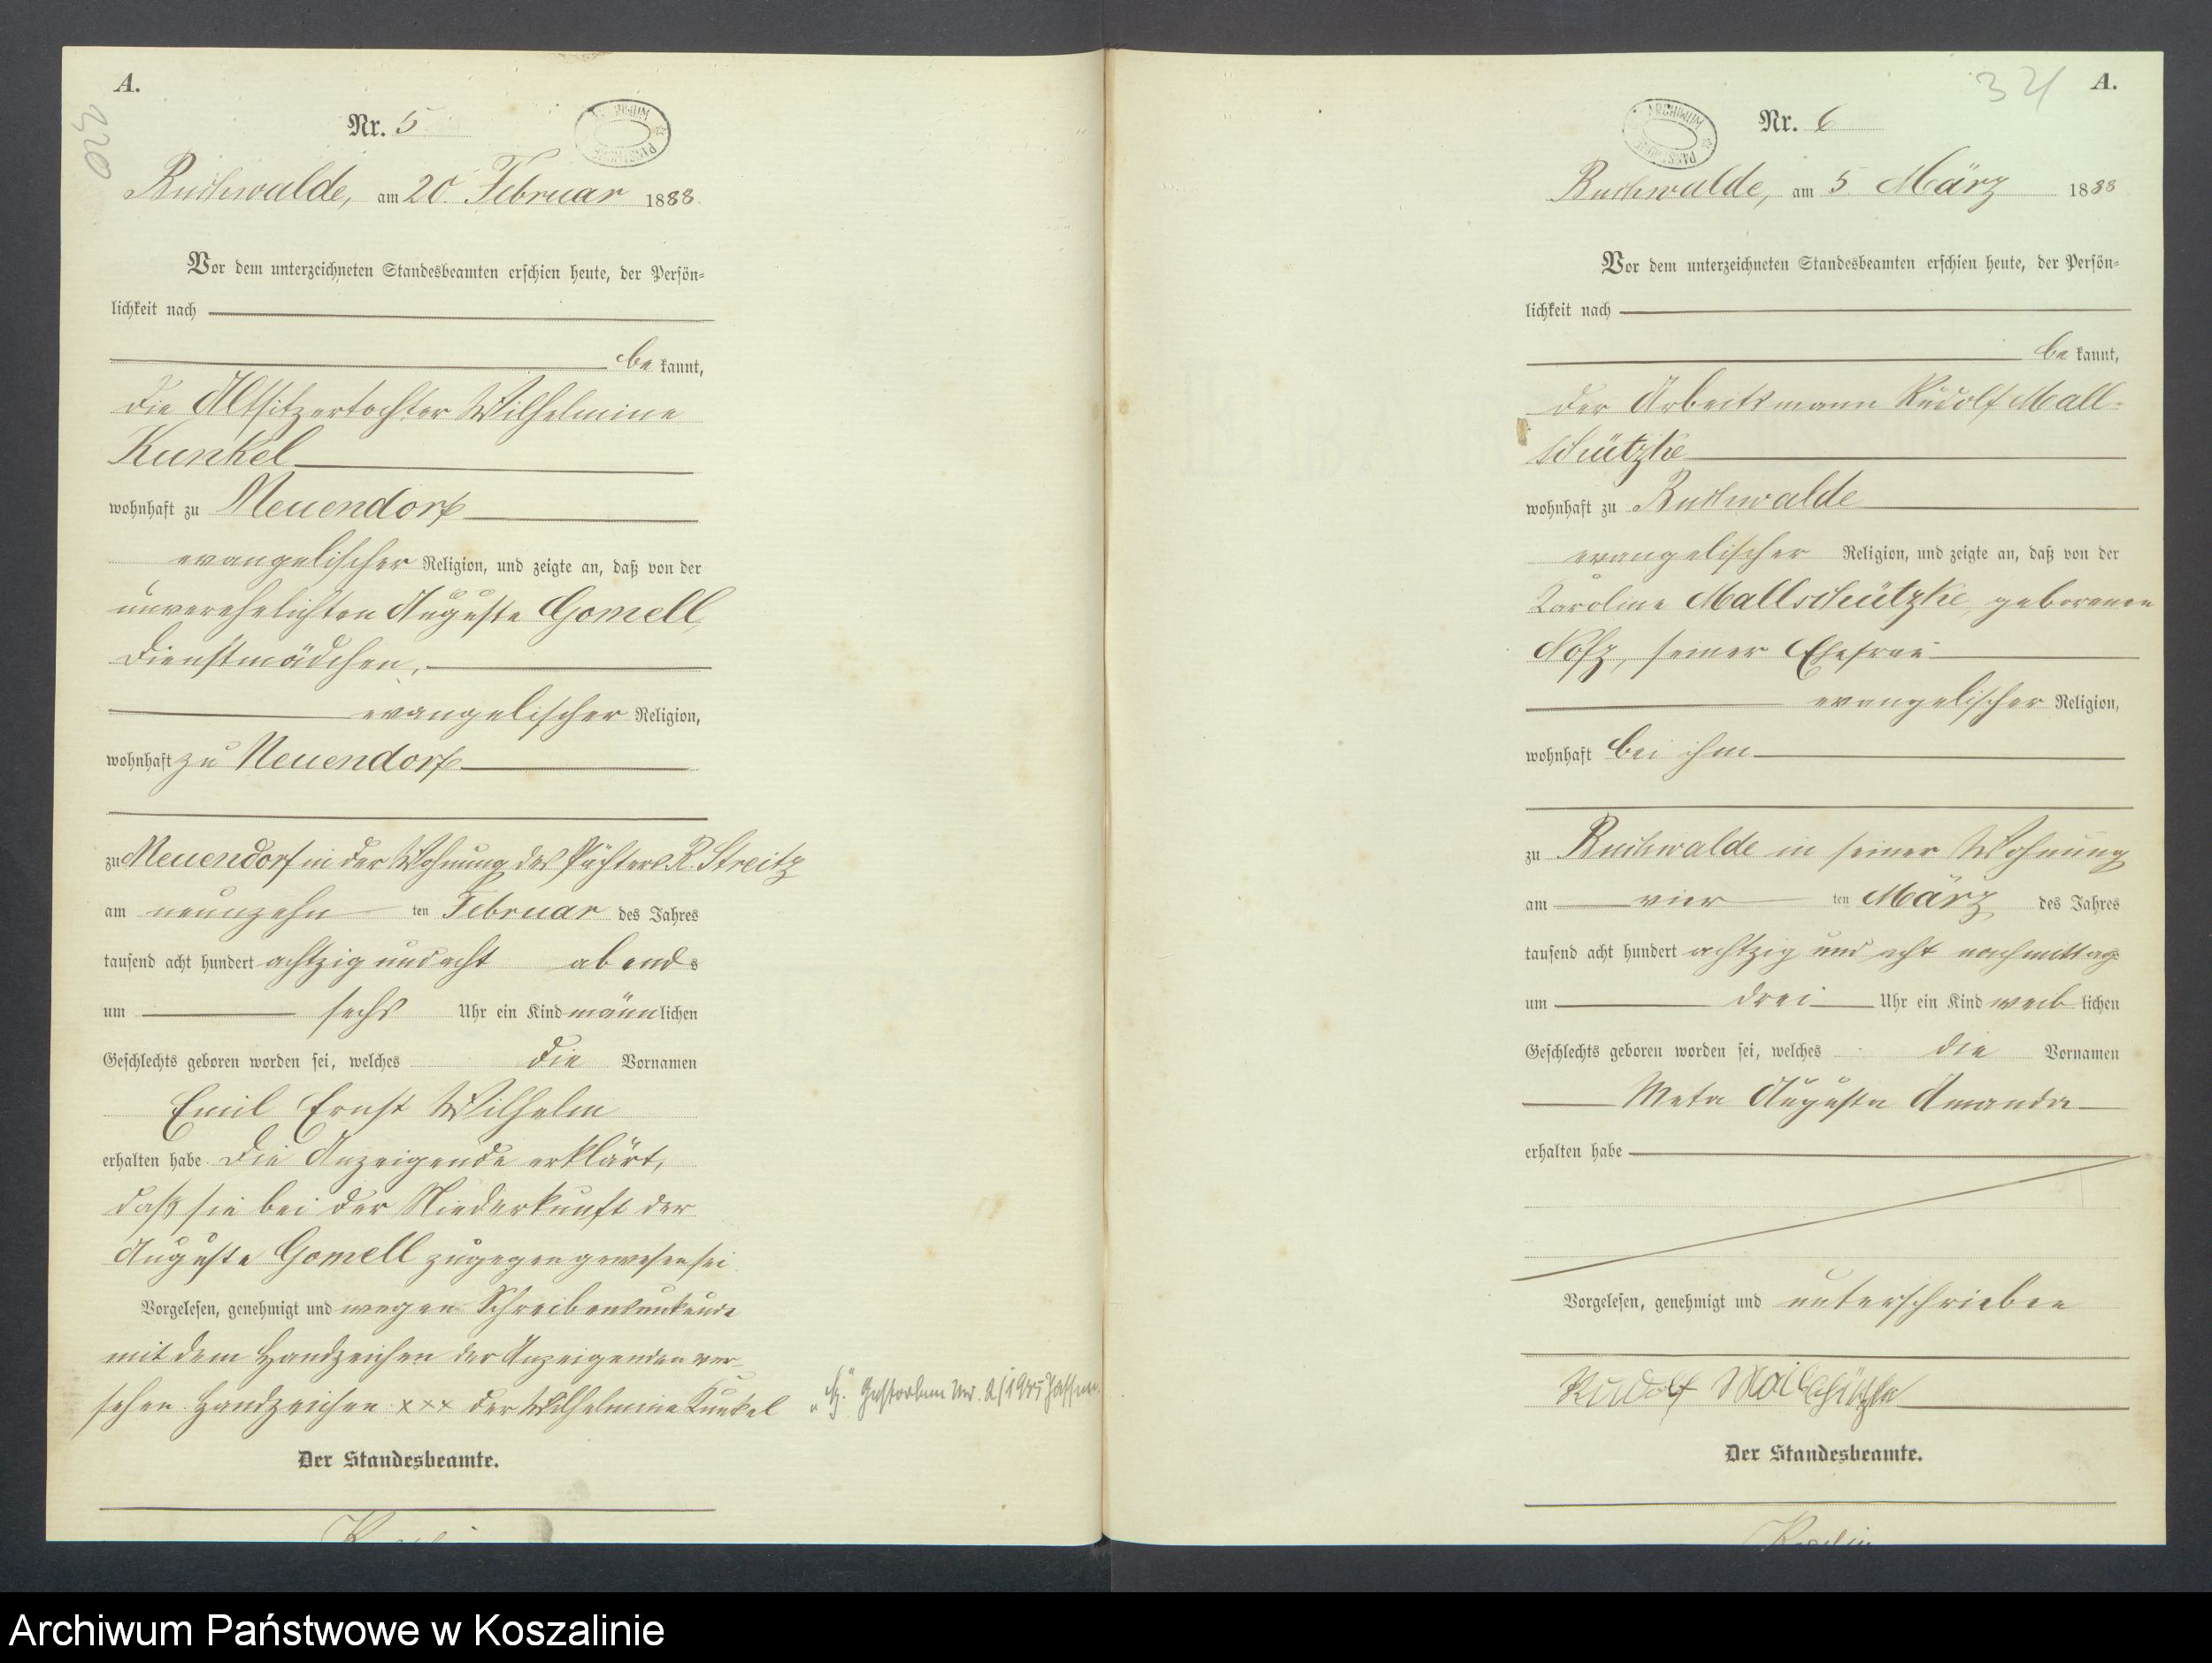 A.
320
Nr. 5
ARCHIWUM PAŃSTWOWE
Buchwalde, am 20. Februar 1888.
Vor dem unterzeichneten Standesbeamten erschien heute, der Persön-
lichkeit nach
be kannt,
die Altsitzertochter Wilhelmine
Kunkel
wohnhaft zu Neuendorf
evangelischer Religion, und zeigte an, daß von der
unverehelichten Auguste Gomell,
Dienstmädchen,
evangelischer Religion,
wohnhaft zu Neuendorf
zu Neuendorf in der Wohnung des Pächters R. Streitz
am neunzehn ten Februar des Jahres
tausend acht hundert achtzig und acht abends
um sechs Uhr ein Kind männlichen
Geschlechts geboren worden sei, welches die Vornamen
Emil Ernst Wilhelm
erhalten habe. Die Anzeigende erklärt,
daß sie bei der Niederkunft der
Auguste Gomell zugegen gewesen sei.
Vorgelesen, genehmigt und wegen Schreibensunkunde
mit dem Handzeichen der Anzeigenden ver-
sehen Handzeichen xxx der Wilhelmine Kunkel
Gestorben Nr. 2/1945
Der Standesbeamte.
A.
321
Nr. 6
ARCHIWUM PAŃSTWOWE
Buchwalde, am 5. März 1888
Vor dem unterzeichneten Standesbeamten erschien heute, der Persön-
lichkeit nach
be kannt,
der Arbeitsmann Rudolf Mall-
schützke
wohnhaft zu Buchwalde
evangelischer Religion, und zeigte an, daß von der
Karoline Mallschützke geborenen
Nofz, seiner Ehefrau
evangelischer Religion,
wohnhaft bei ihm
zu Buchwalde in seiner Wohnung
am vier ten März des Jahres
tausend acht hundert achtzig und acht nachmittags
um drei Uhr ein Kind weib lichen
Geschlechts geboren worden sei, welches die Vornamen
Meta Auguste Amanda
erhalten habe
Vorgelesen, genehmigt und unterschrieben
Rudolf Mallschützke
Der Standesbeamte.
Archiwum Państwowe w Koszalinie